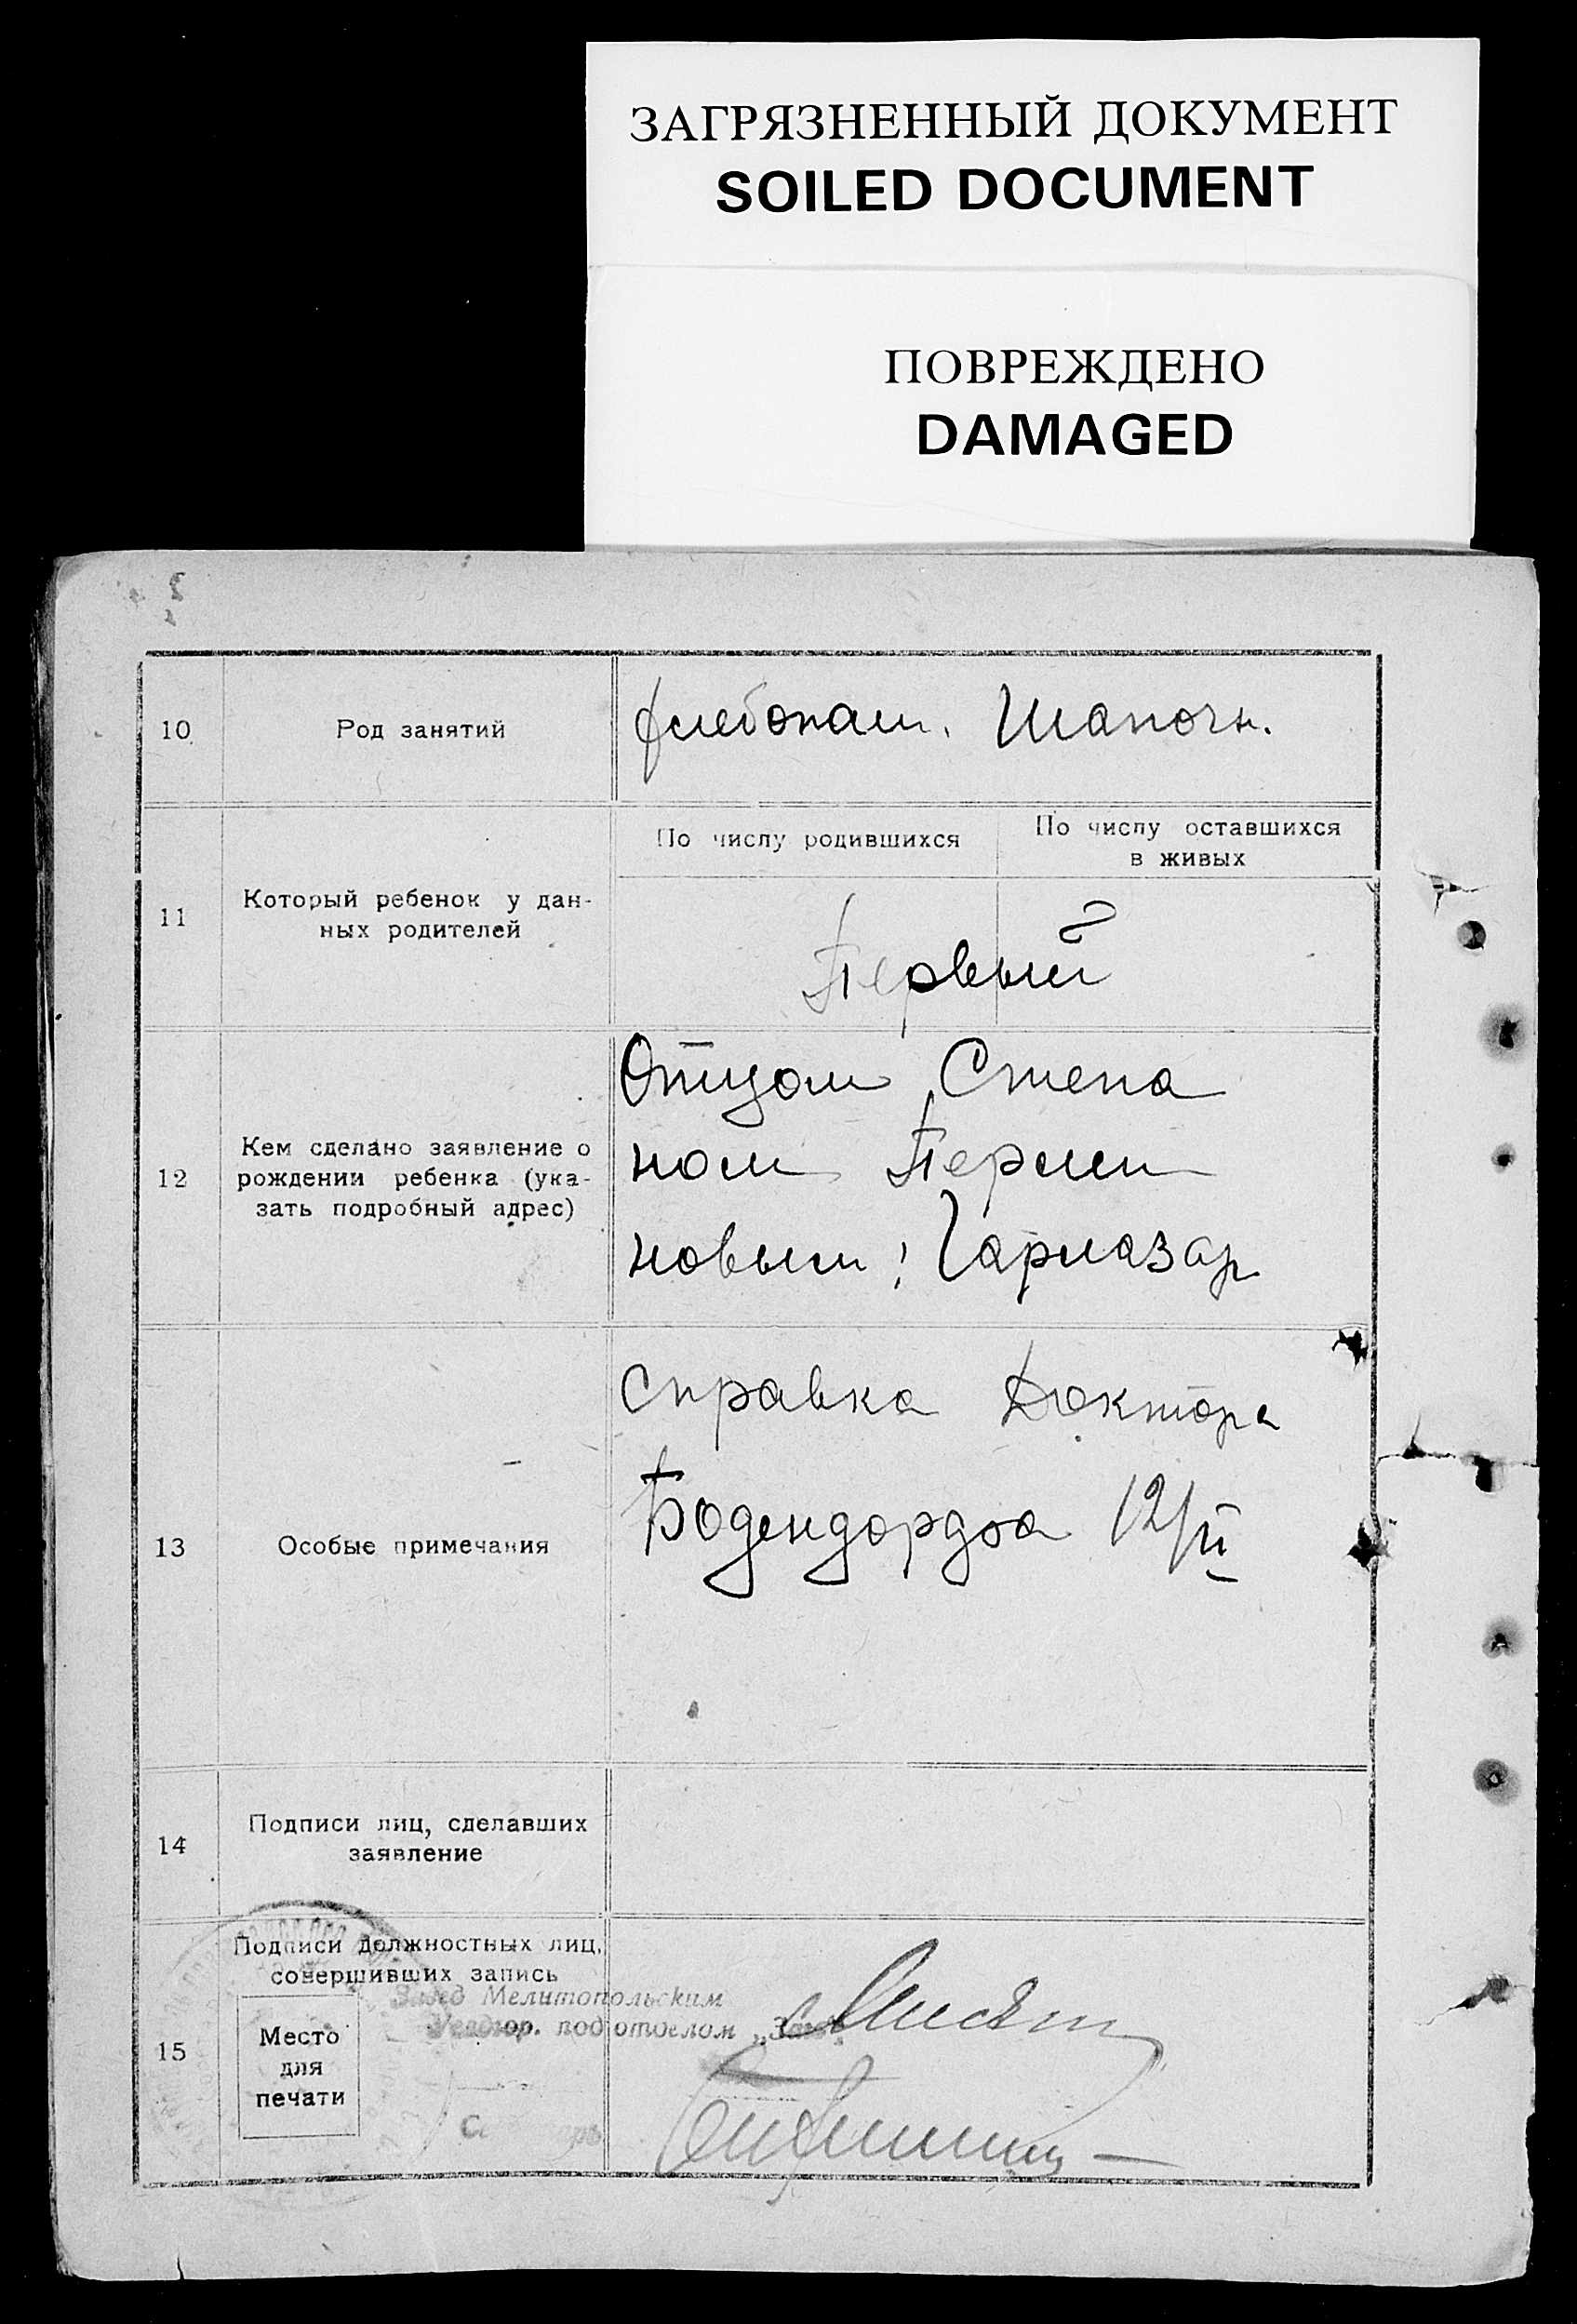 ЗАГРЯЗНЕННЫЙ ДОКУМЕНТ
SOILED DOCUMENT
ПОВРЕЖДЕНО
DAMAGED
10
Род занятий
хлебопаш. Шапочн.
11
Который ребенок у дан-
ных родителей
По числу родившихся
По числу оставшихся
в живых
Первый
12
Кем сделано заявление о
рождении ребенка (ука-
зать подробный адрес)
Отцом Степа
ном Перши
новым:
13
Особые примечания
Справка Доктора
Бодендорфа 12/II
14
Подписи лиц, сделавших
заявление
15
Подписи должностных лиц,
совершивших запись
Завед Мелитопольским
подотделом „Загс"
Место
для
печати